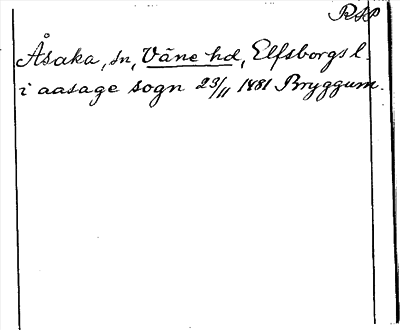 RSP
Åsaka, sn, Väne hd, Elfsborgs l.
i aasage sogn 23/11 1881 Bryggum.